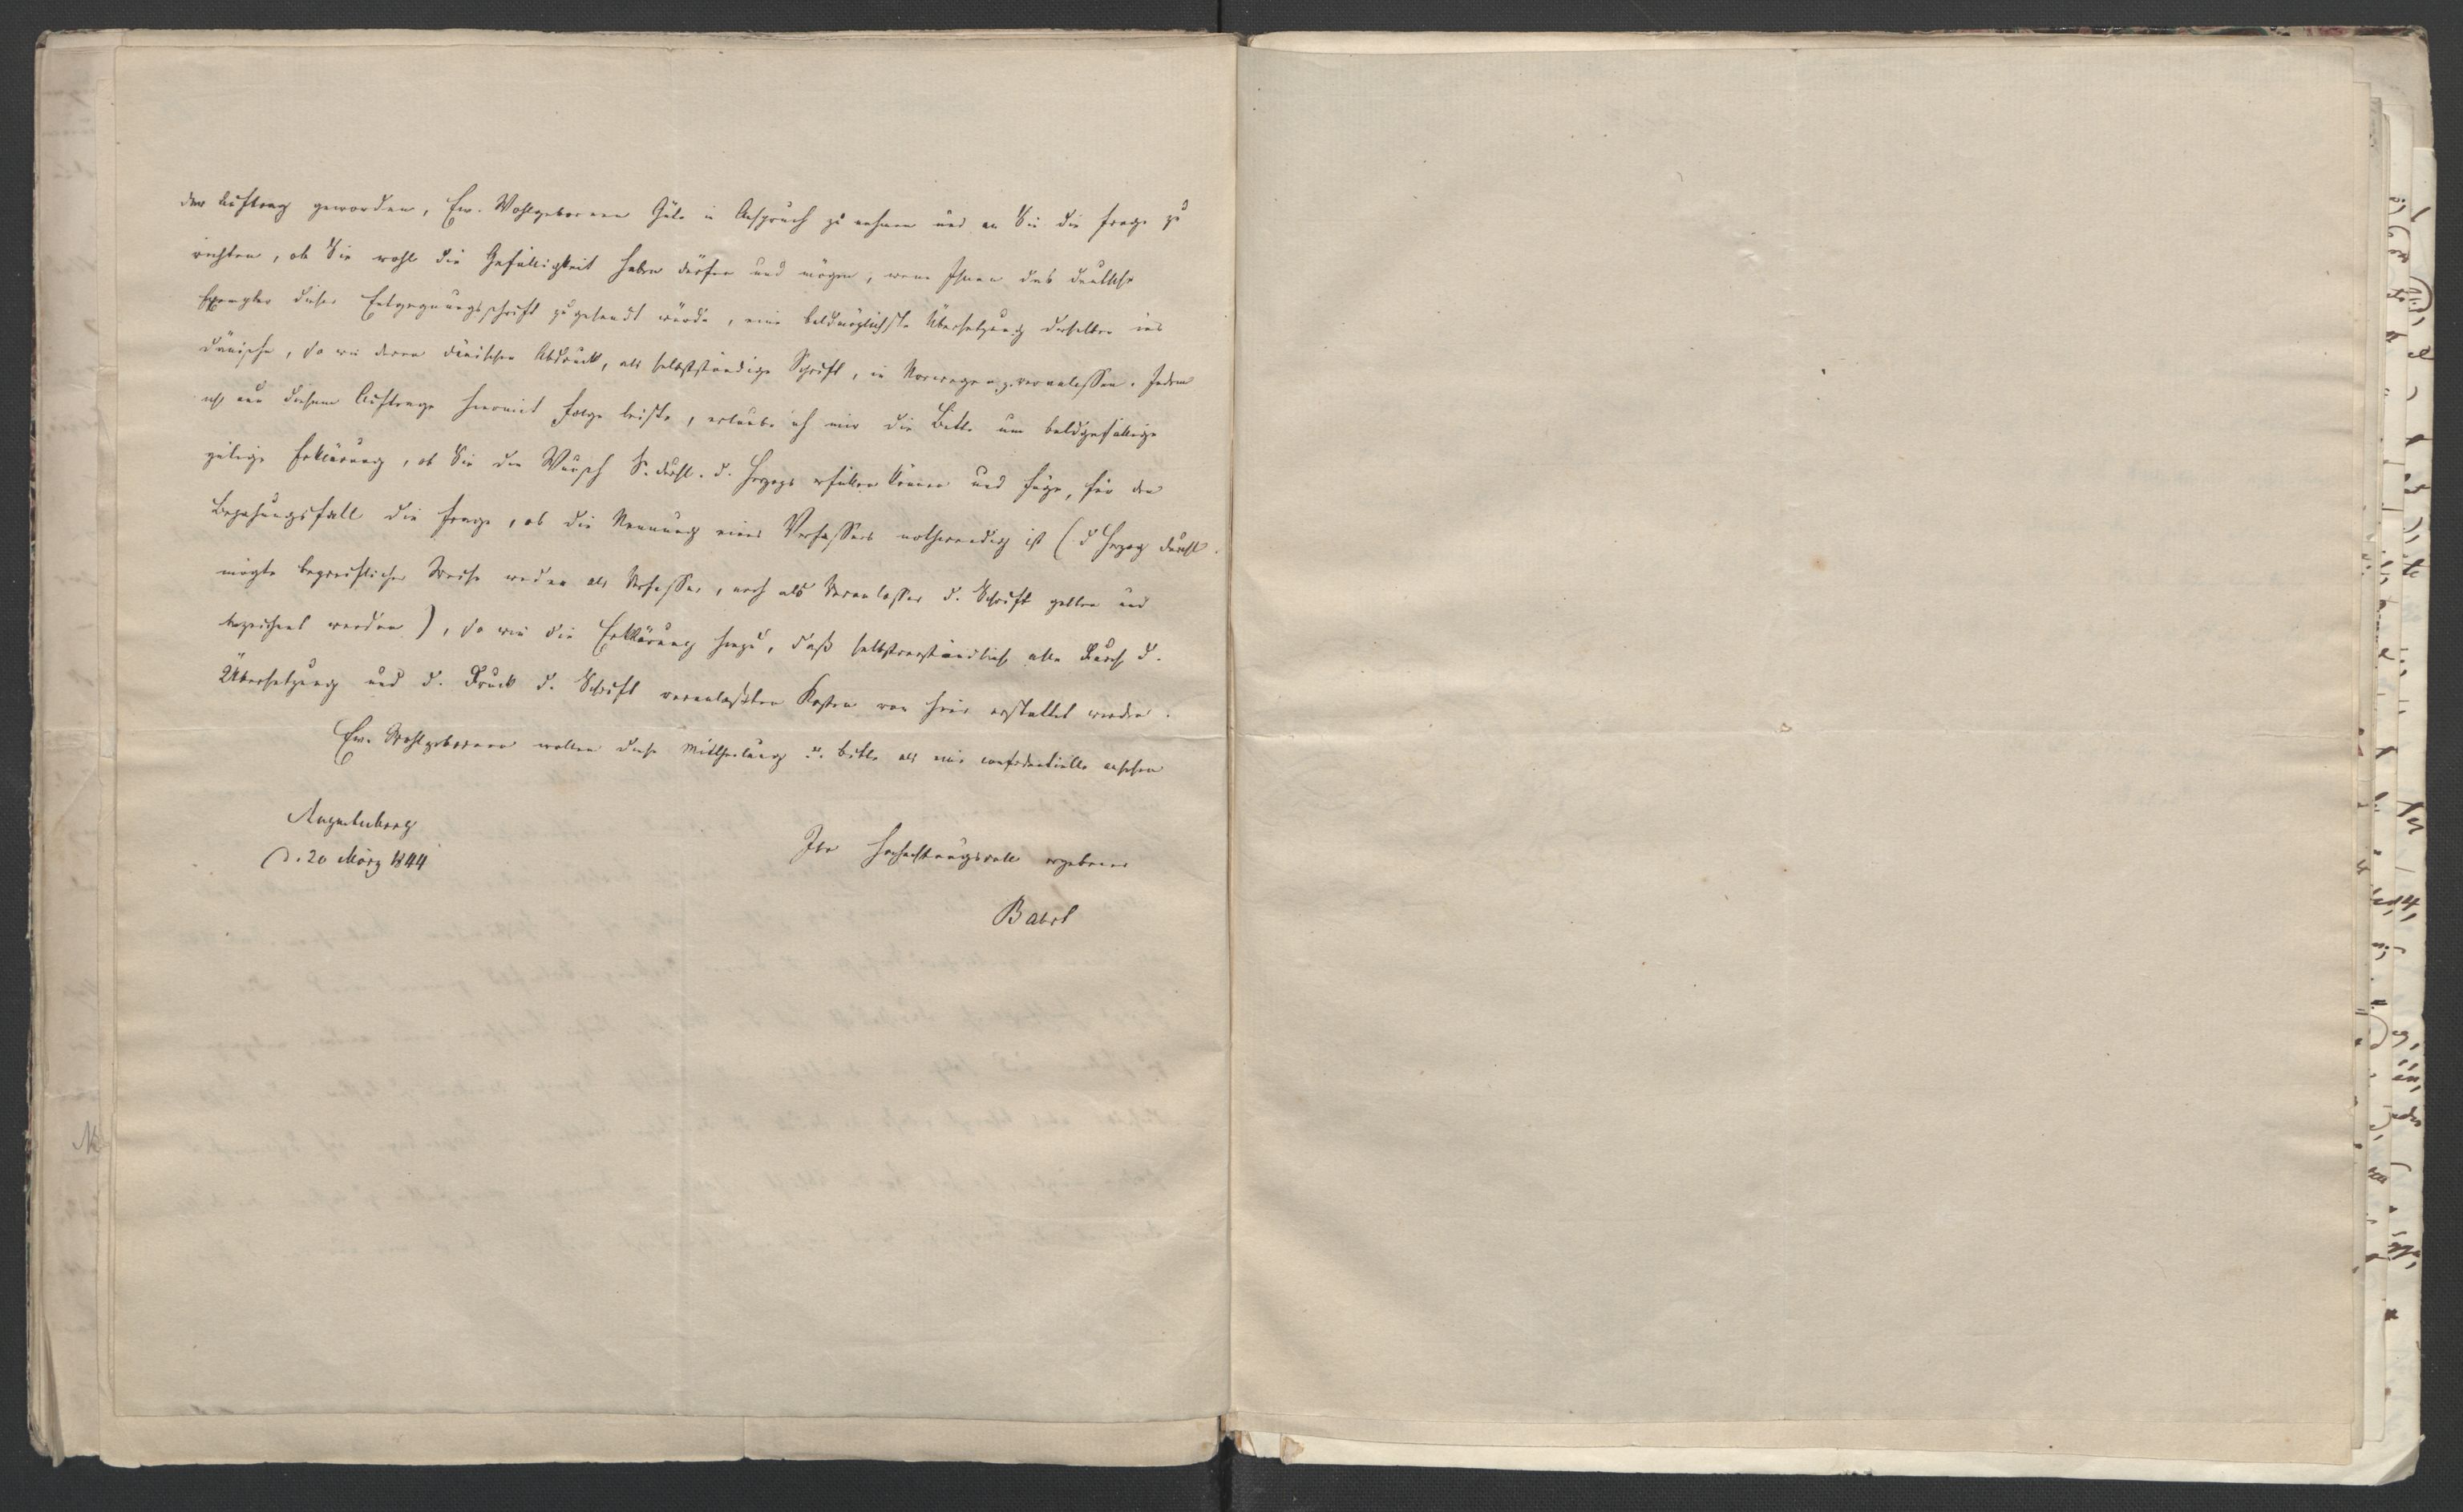 der Auftrag geworden, Ew. Wohlgeboren Güte in Anspruch zu nehmen und an Sie die Frage zu
richten, ob Sie wohl die Gefälligkeit haben dürfen und mögen, wenn Ihnen das deutsche
Exemplar dieser Entgegnungsschrift zugesandt würde, eine baldmöglichste Übersetzung derselben ins
dänische, so wie deren dänischen Abdruck, als selbstständige Schrift, in Norwegen z. veranlassen. Indem
ich nun diesem Auftrage hiermit Folge leiste, erlaube ich mir die Bitte um baldgefällige
gütige Erklärung, ob Sie den Wunsch S. Durchl. d. Herzogs erfüllen können und füge, für den
Bejahungsfall die Frage, ob die Nennung eines Verfassers nothwendig ist (d Herzog Durchl.
mögte begreiflicher Weise weder als Verfasser, noch als Veranlasser d. Schrift gelten und
bezeichnet werden), so wie die Erklärung hinzu, daß selbstverständlich alle durch d.
Übersetzung und d. Druck d. Schrift veranlaßten Kosten von hier erstattet werden.
Ew. Wohlgeboren wollen diese Mittheilung u. Bitte als eine confidentielle ansehen
Augustenburg
d. 20 März 1844
Ihr hochachtungsvoll ergebener